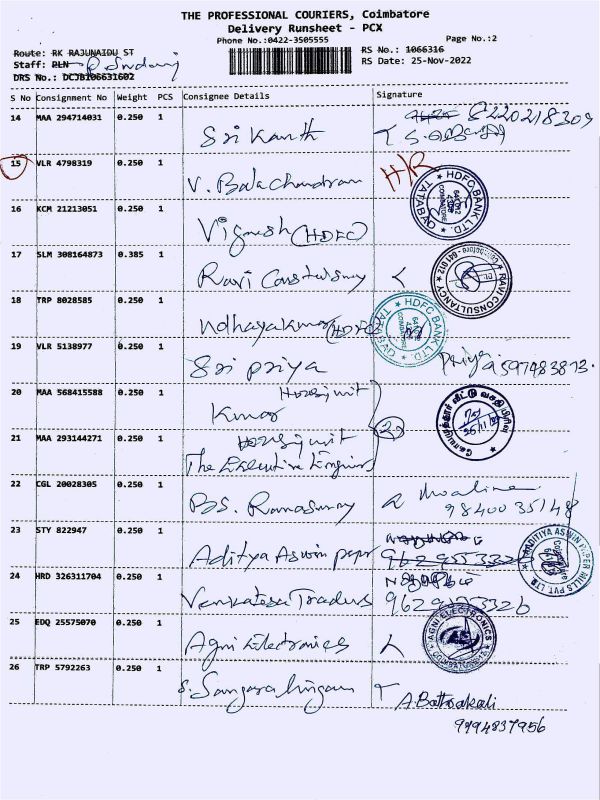 THE PROFESSIONAL COURIERS, Coimbatore
Delivery Runsheet - PCX
Phone No.:0422-3505555
Page No.:2
Route: RK RAJUNAIDU ST
Staff: PLN
DRS No.: DCJB106631602
RS No.: 1066316
RS Date: 25-Nov-2022
S No Consignment No Weight PCS Consignee Details Signature
14 MAA 294714031 0.250 1 Srikanth 8220218309
15 VLR 4798319 0.250 1 V. Balachandran H/R
HDFC BANK LTD. TATABAD COIMBATORE 641 012
16 KCM 21213051 0.250 1 Vignesh (HDFC)
17 SLM 308164873 0.385 1 Ravi
RAVI CONSULTANCY Coimbatore - 641 012
18 TRP 8028585 0.250 1 Udhayakumar (HDFC)
HDFC BANK LTD. TATABAD COIMBATORE
19 VLR 5138977 0.250 1 Sri priya Priya 9597483873.
20 MAA 568415588 0.250 1 Housing unit
Kumar
21 MAA 293144271 0.250 1 Housing unit
The Executive Engineer
2
22 CGL 20028305 0.250 1 B.S. Ramasamy 9840035148
23 STY 822947 0.250 1 Aditya Aswin paper
AADITIYA ASWIN PAPER MILLS PVT. LTD
24 HRD 326311704 0.250 1 Venkatesa Traders
25 EDQ 25575070 0.250 1 Agni Electronics
AGNI ELECTRONICS COIMBATORE
26 TRP 5792263 0.250 1 S. Sangaralingam
A. Bathrakali
9994837956